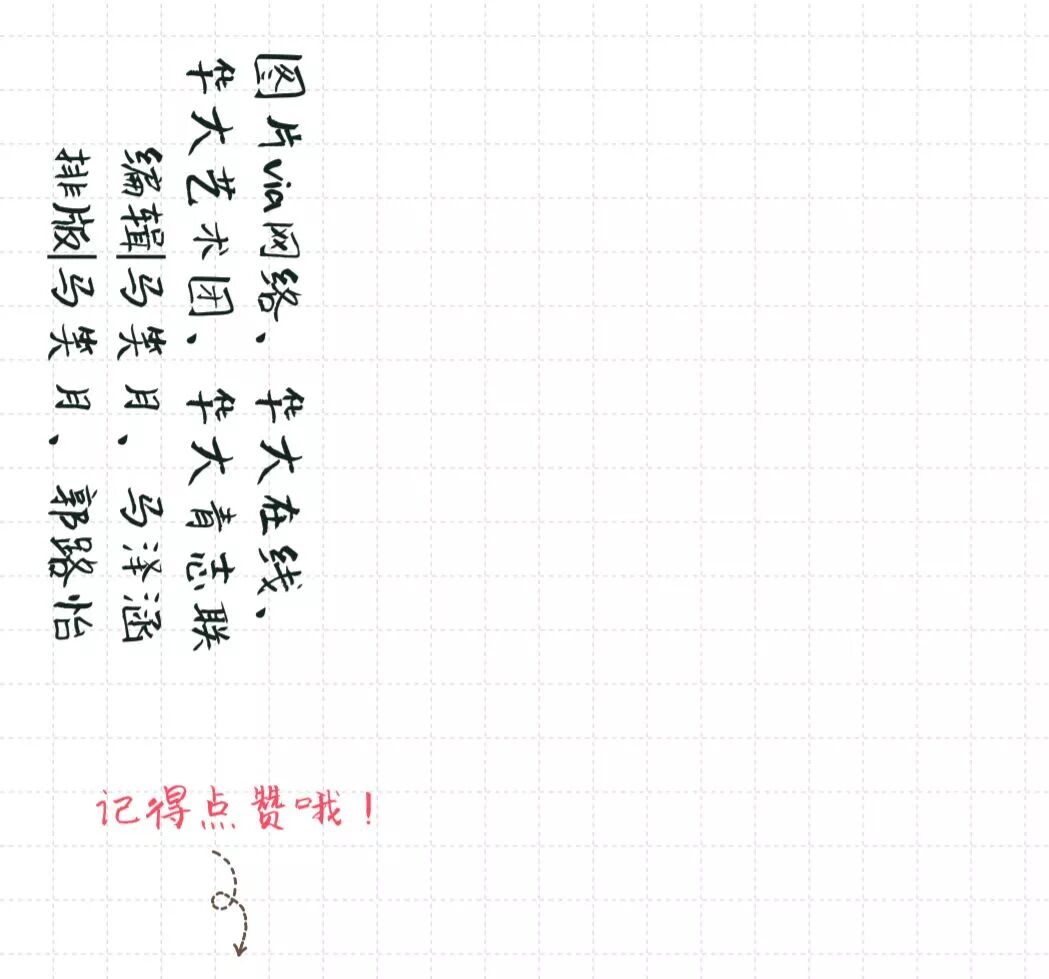 图片via网络、华大在线、
华大艺术团、华大青志联
编辑|马笑月、马泽涵
排版|马笑月、郭路怡
记得点赞哦！